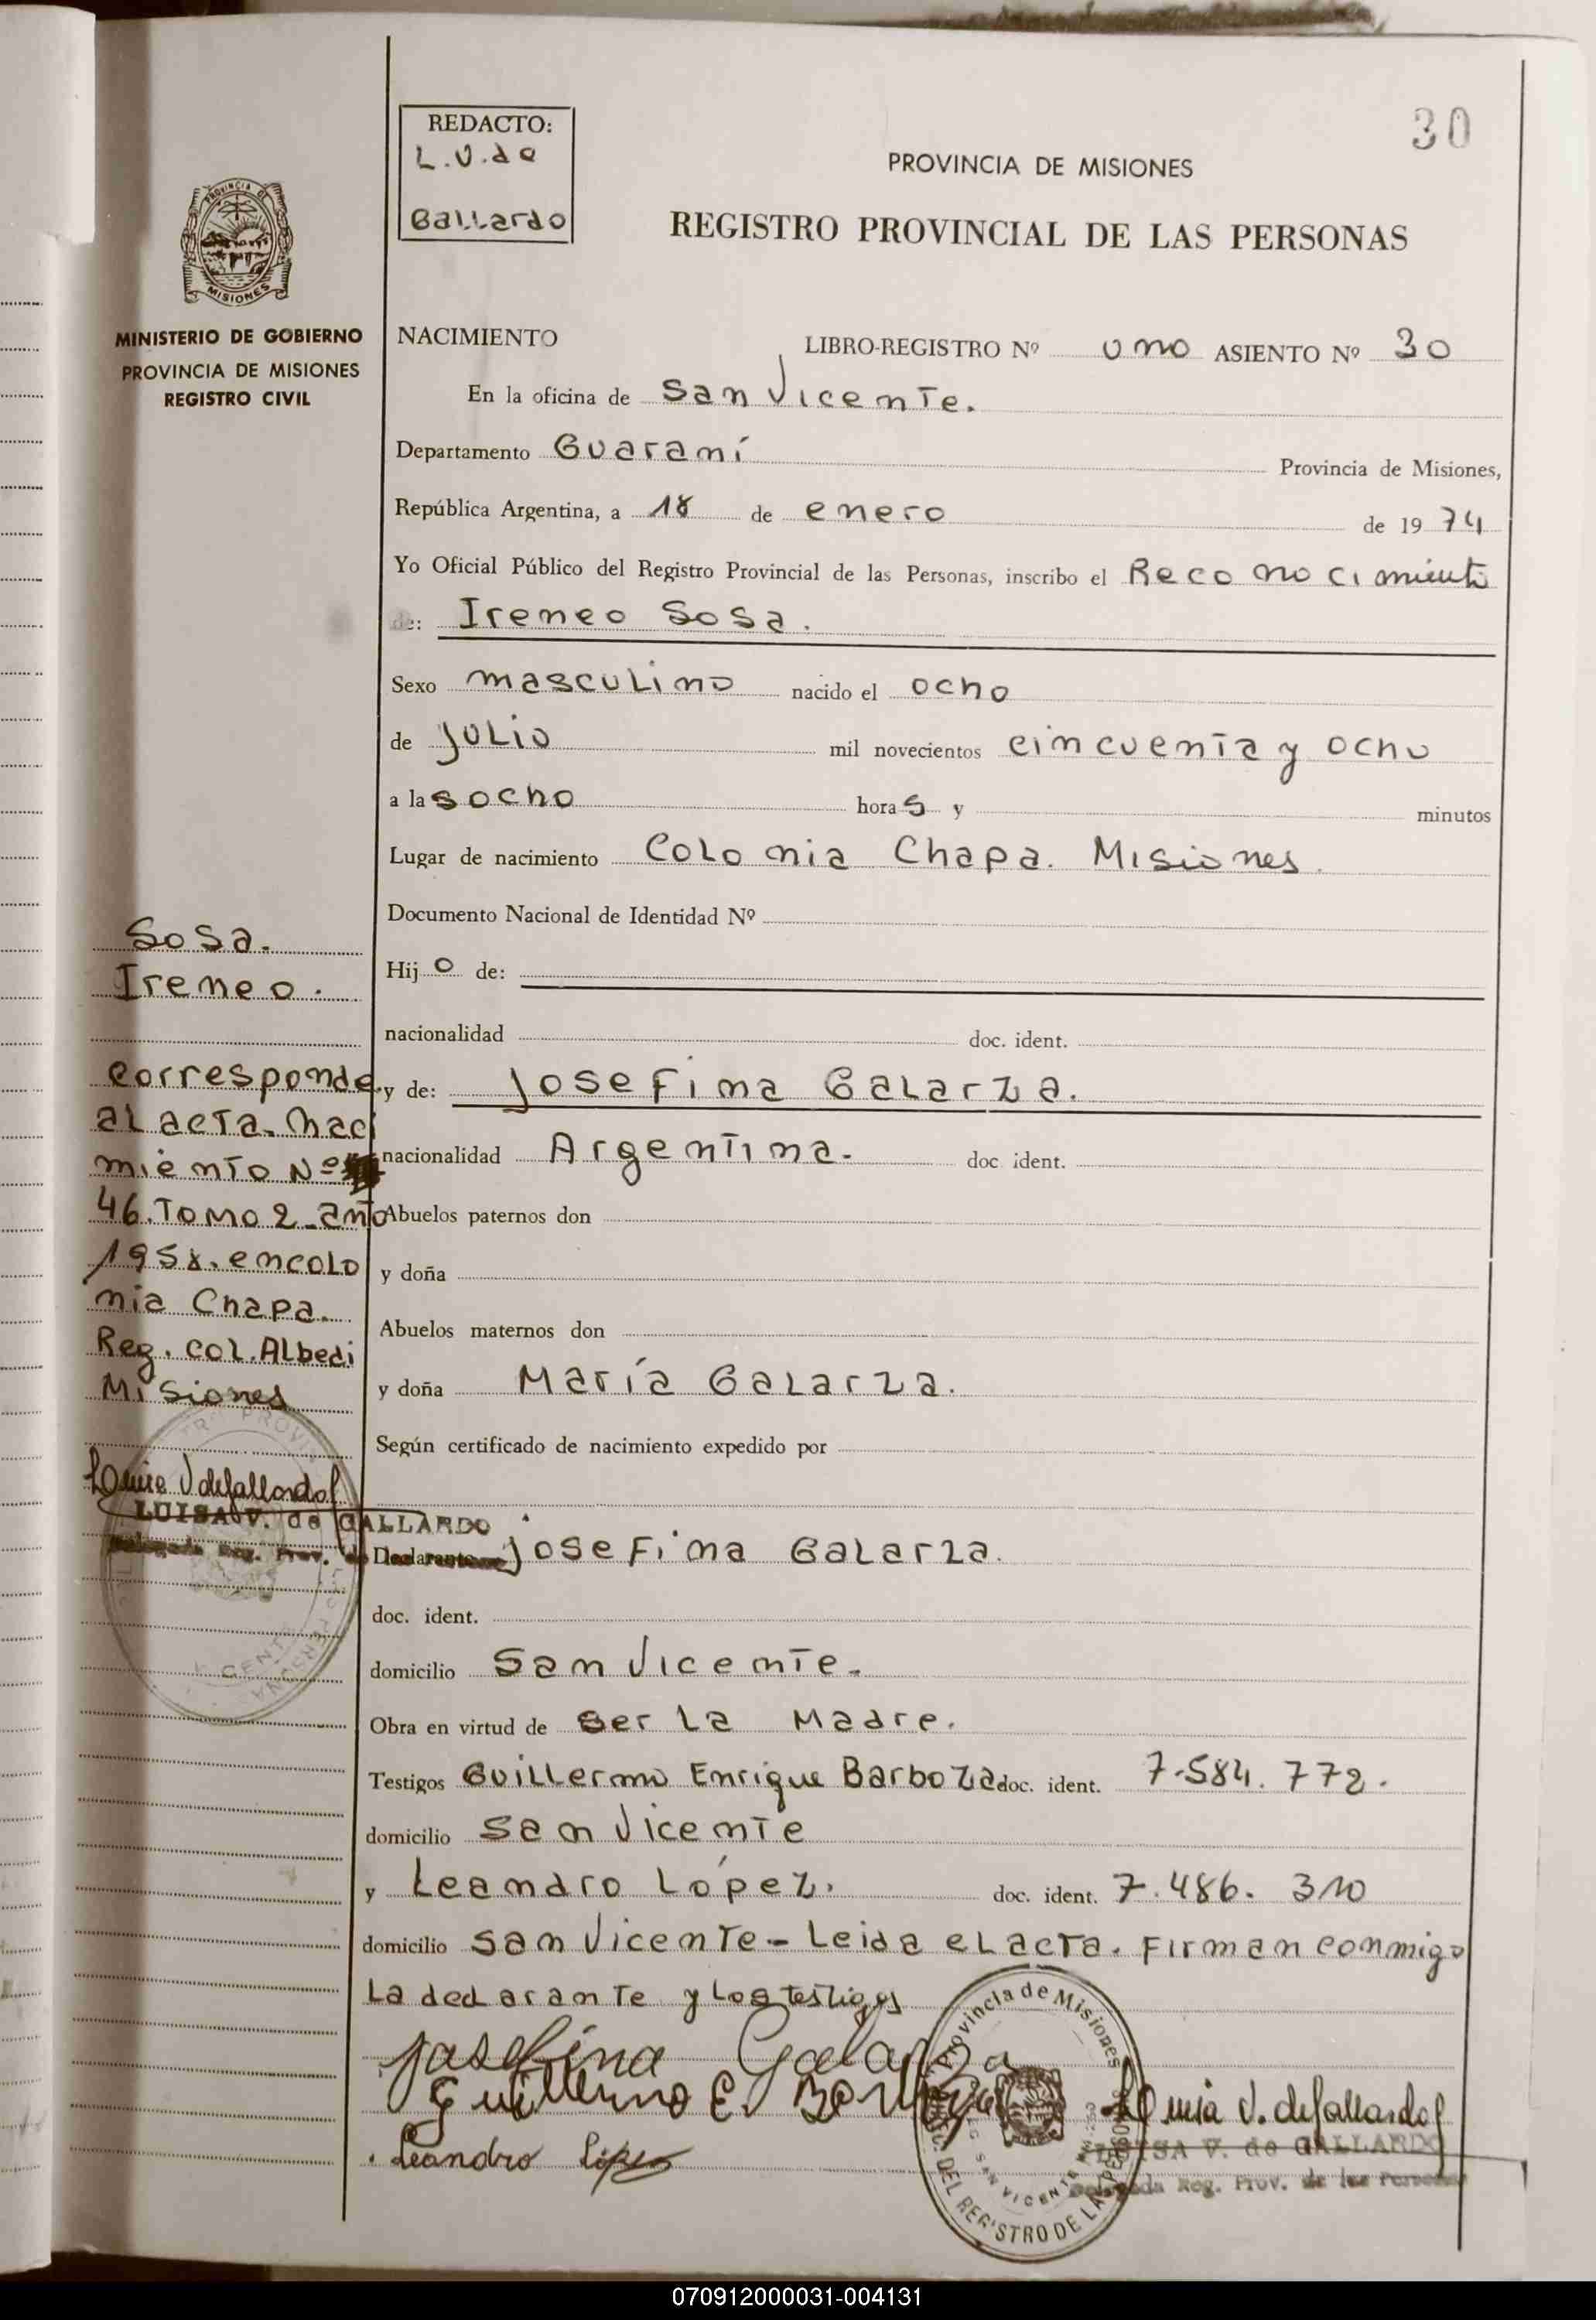 30
REDACTO:
L.V.de
Gallardo
PROVINCIA DE MISIONES
REGISTRO PROVINCIAL DE LAS PERSONAS
PROVINCIA DE
MISIONES
MINISTERIO DE GOBIERNO
PROVINCIA DE MISIONES
REGISTRO CIVIL
NACIMIENTO
LIBRO-REGISTRO Nº uno ASIENTO Nº 30
En la oficina de San Vicente.
Departamento Guaraní Provincia de Misiones,
República Argentina, a 18 de enero de 1974
Yo Oficial Público del Registro Provincial de las Personas, inscribo el Reconocimiento
de: Ireneo Sosa.
Sexo masculino nacido el ocho
de Julio mil novecientos cincuenta y ocho
a las ocho horas y minutos
Lugar de nacimiento Colonia Chapa. Misiones.
Documento Nacional de Identidad Nº
Hijo de:
nacionalidad doc. ident.
y de: Josefina Galarza.
nacionalidad Argentina. doc ident.
Abuelos paternos don
y doña
Abuelos maternos don
y doña María Galarza.
Según certificado de nacimiento expedido por
Declarante Josefina Galarza.
doc. ident.
domicilio San Vicente.
Obra en virtud de ser la Madre.
Testigos Guillermo Enrique Barboza doc. ident. 7.584.772.
domicilio San Vicente
y Leandro López. doc. ident. 7.486.310
domicilio San Vicente - Leida el acta. Firman conmigo
la declarante y los testigos
Josefina Galarza
Guillermo E. Barboza
Leandro López
Luisa V. de Gallardo
LUISA V. de GALLARDO
Delegada Reg. Prov. de las Personas
Provincia de Misiones
DEL REGISTRO DE LAS PERSONAS
SAN VICENTE
Sosa.
Ireneo.
Corresponde
al acta. Naci
miento Nº
46. Tomo 2 - año
1958. en Colo
nia Chapa.
Reg. Col. Alberdi
Misiones
Luisa V de Gallardo
LUISA V. de GALLARDO
Delegada Reg. Prov. de
070912000031-004131